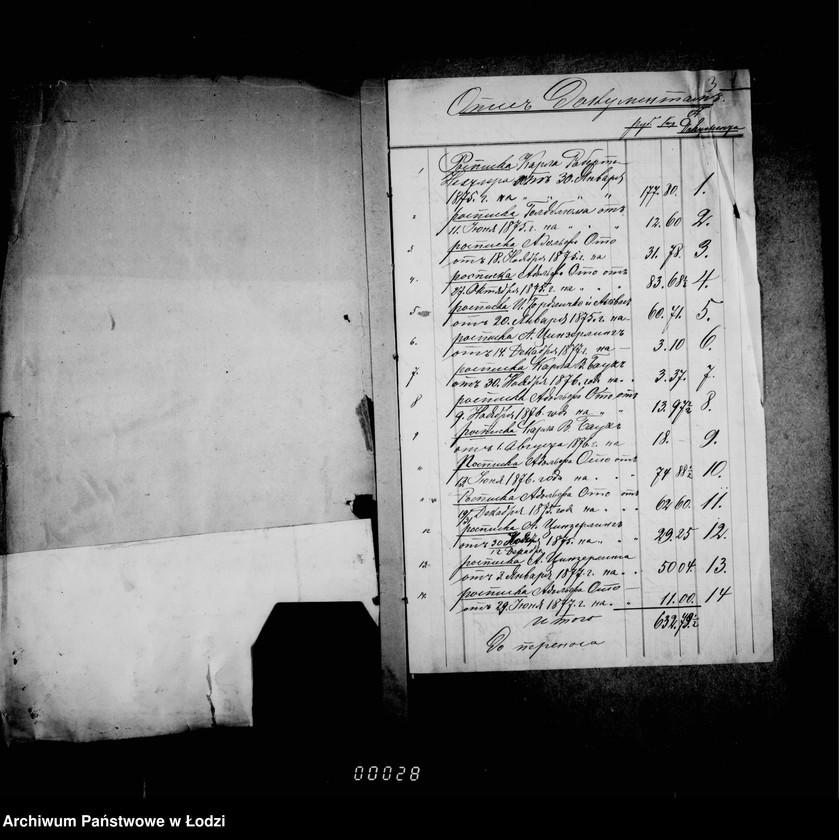 3
Опись Документамъ.
руб. коп № Документа
1 Росписка Карла Роберта
отъ 30. Января
1875. г. на " " " " 177. 80. 1.
2 росписка Гольдблюма отъ
11. Іюня 1875. г. на " " " 12. 60 2.
3 росписка Адольфа Отто
отъ 18. Ноября 1875. г. на 31. 78. 3.
4. росписка Адольфа Отто отъ
27. Октября 1875. г. на . . . 83. 68½ 4.
5 росписка
отъ 20. Января 1875. г. на 60. 71. 5.
6. росписка А. Цинзерлингъ
отъ 14. Декабря 1877. г. на — 3. 10 6.
7. росписка Карла В. Баухъ
отъ 30. Ноября 1876. года на . . 3. 37. 7.
8 росписка Адольфа Отто отъ
9. Ноября 1876 года на " " 13. 97½ 8.
9 росписка Карла В. Баухъ
отъ 1. Августа 1876. г. на 18. — 9.
" Росписка Адольфа Отто отъ
12. Іюня 1876. года на . . . 74 88½ 10.
" Росписка Адольфа Отто отъ
Декабря 1875. года на . . . 62 60. 11.
12 росписка А. Цинзерлингъ
отъ 30 Ноября 1875. на " . . 29. 25 12.
12 Декабря
13. росписка А. Цинзерлинга
отъ 2. Января 1877. г. на . . 50 04. 13.
14. росписка Адольфа Отто
отъ 29. Іюня 1877. г. на . " 11. 00. 14
итого 632. 79½
До переноса
00028
Archiwum Państwowe w Łodzi